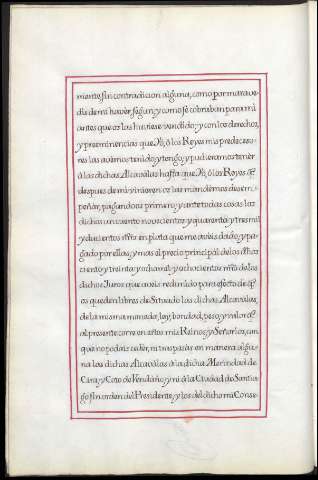 miento, sin contradicion alguna, como por marave
dis de mi haver segun y como se cobraban para mi
antes que os las huviese vendido; y con los derechos,
y preeminencias que Yo, o los Reyes mis predeceso
res las avemos tenido, y tengo, y pudieramos tener
à las dichas Alcavalas hasta que Yo, o los Reyes q̃
despues de mi vinieren os las mandemos desem
peñar, pagandoos primero, y ante todas cosas los
dichos un cuento novecientos y quarenta y tres mil
y ducientos mrs en plata que me aveis dado, y pa
gado por ellas, y mas al precio principal de los
ciento y treinta y ocho mil y ochocientos mrs de los
dichos Juros que aveis redimido para efecto de q̃
os queden libres de Situado las dichas Alcavalas,
de la misma moneda, ley, bondad, peso, y valor q̃
al presente corre en estos mis Reinos, y Señorios, con
que no podais ceder, ni traspasar en manera algu
na las dichas Alcavalas à la dicha Merindad de
Cira, y Coto de Vendaño, y ni à la Ciudad de Santia
go sin orden del Presidente, y los del dicho mi Conse